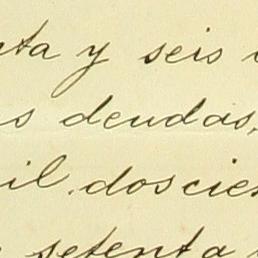 nta y seis
s deudas,
il doscien
setenta